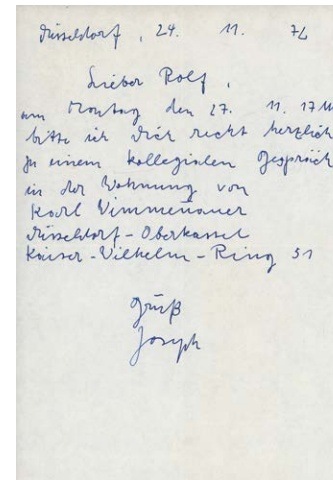 Düsseldorf, 24. 11. 72
Lieber Rolf,
am Montag den 27. 11. 17 U
bitte ich Dich recht herzlich
zu einem kollegialen Gespräch
in der Wohnung von
Karl Wimmenauer
Düsseldorf-Oberkassel
Kaiser-Wilhelm-Ring 51
Gruß
Joseph